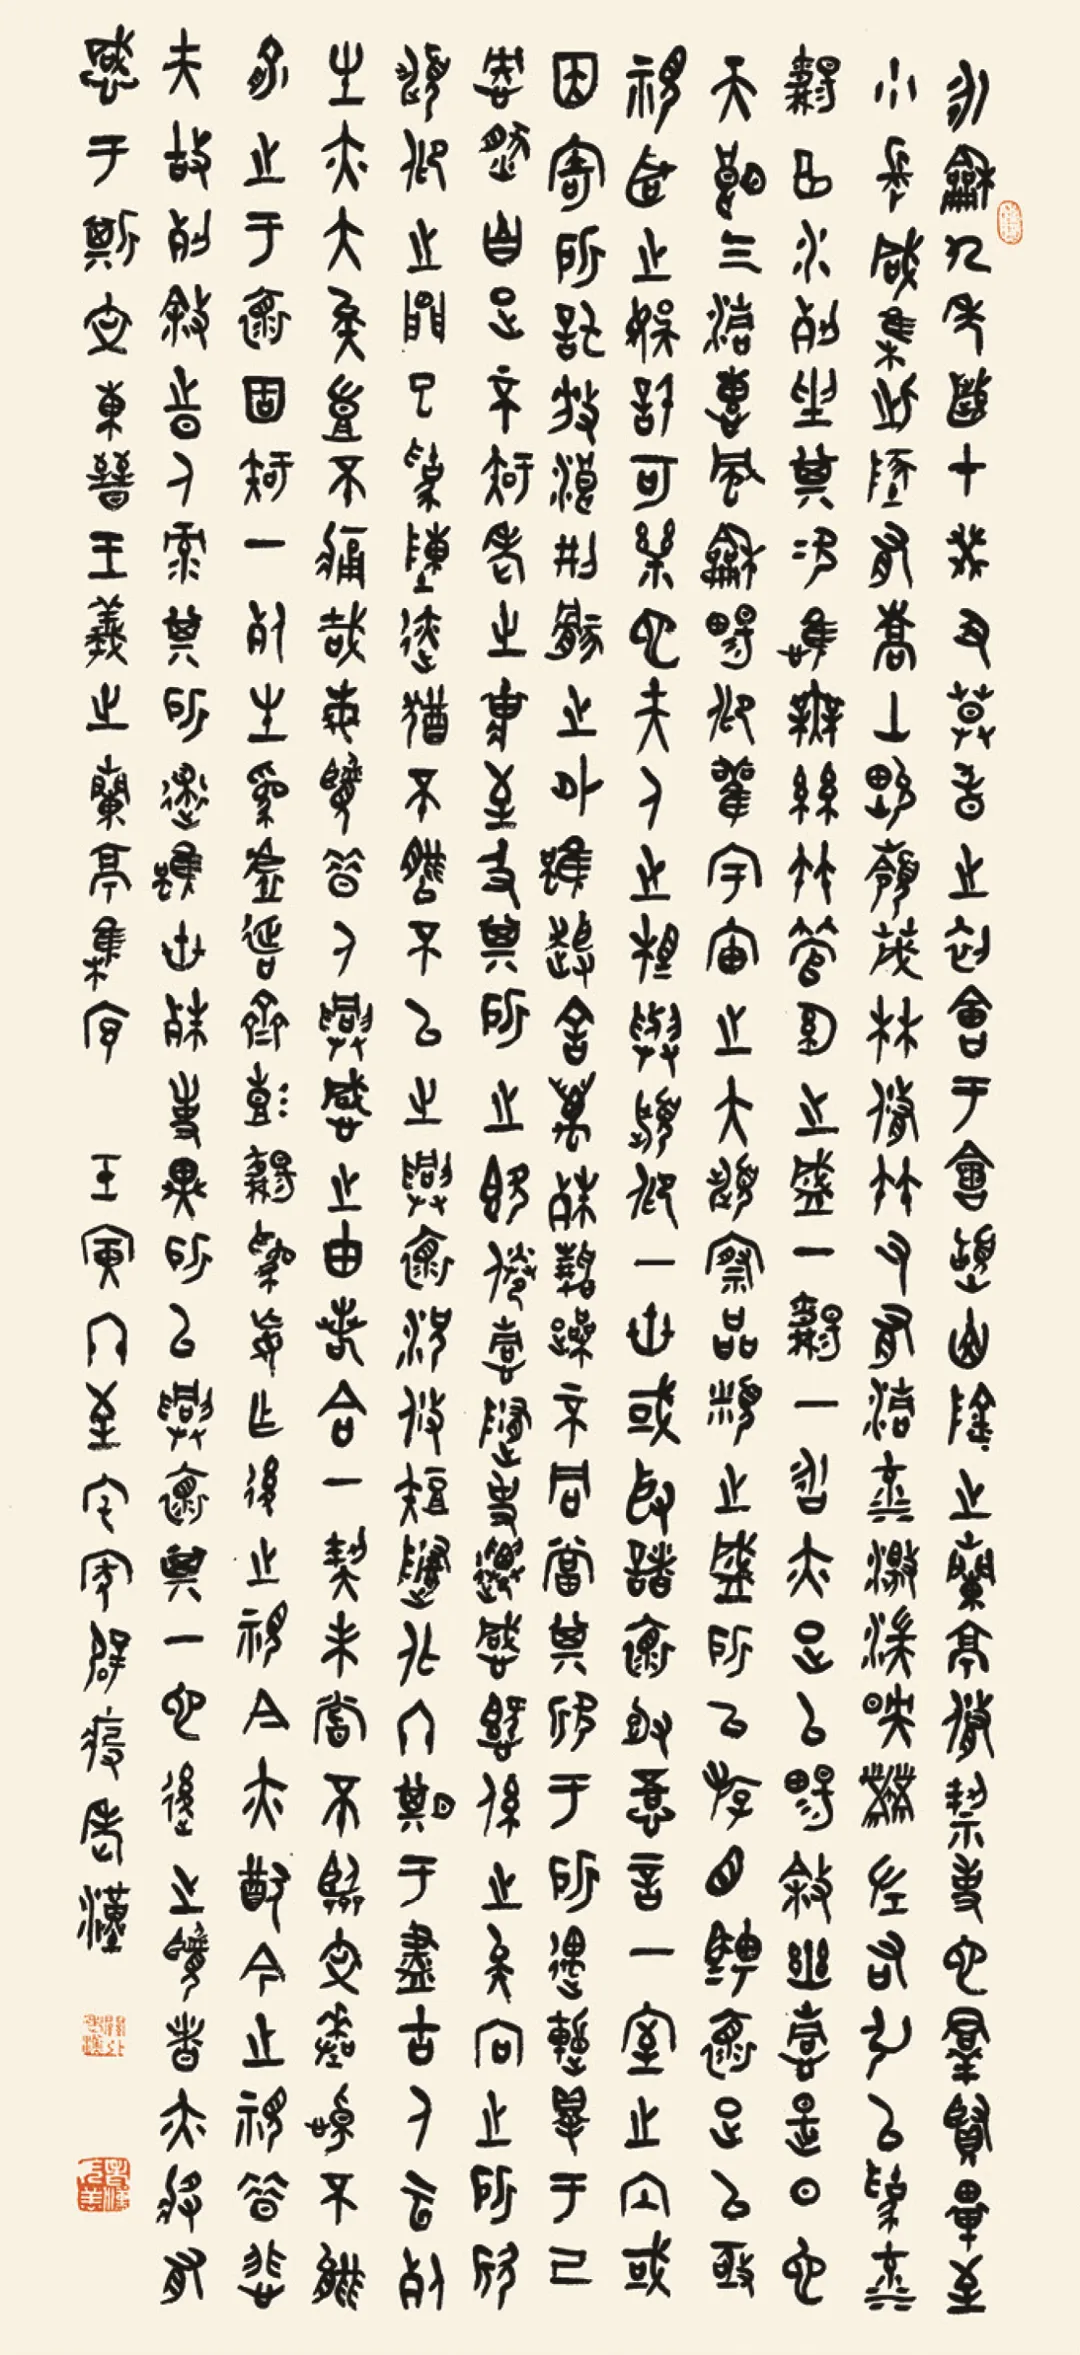 永和九年歲在癸丑暮春之初會于會稽山陰之蘭亭脩禊事也群賢畢至
少長咸集此地有崇山峻嶺茂林脩竹又有清流激湍映帶左右引以為流
觴曲水列坐其次雖無絲竹管弦之盛一觴一詠亦足以暢敘幽情是日也
天朗气清惠風和暢仰觀宇宙之大俯察品類之盛所以游目騁懷足以極
視聽之娛信可樂也夫人之相與俯仰一世或取諸懷抱悟言一室之內或
因寄所託放浪形骸之外雖趣舍萬殊靜躁不同當其欣于所遇暫得于己
快然自足不知老之將至及其所之既倦情隨事遷感慨係之矣向之所欣
俯仰之間已為陳迹猶不能不以之興懷況脩短隨化終期于盡古人云死
生亦大矣豈不痛哉每覽昔人興感之由若合一契未嘗不臨文嗟悼不能
喻之于懷固知一死生為虛誕齊彭殤為妄作後之視今亦猶今之視昔悲
夫故列敘時人錄其所述雖世殊事異所以興懷其一也後之覽者亦將有
感于斯文東晉王羲之蘭亭集序 壬寅冬至宅家避疫老漢